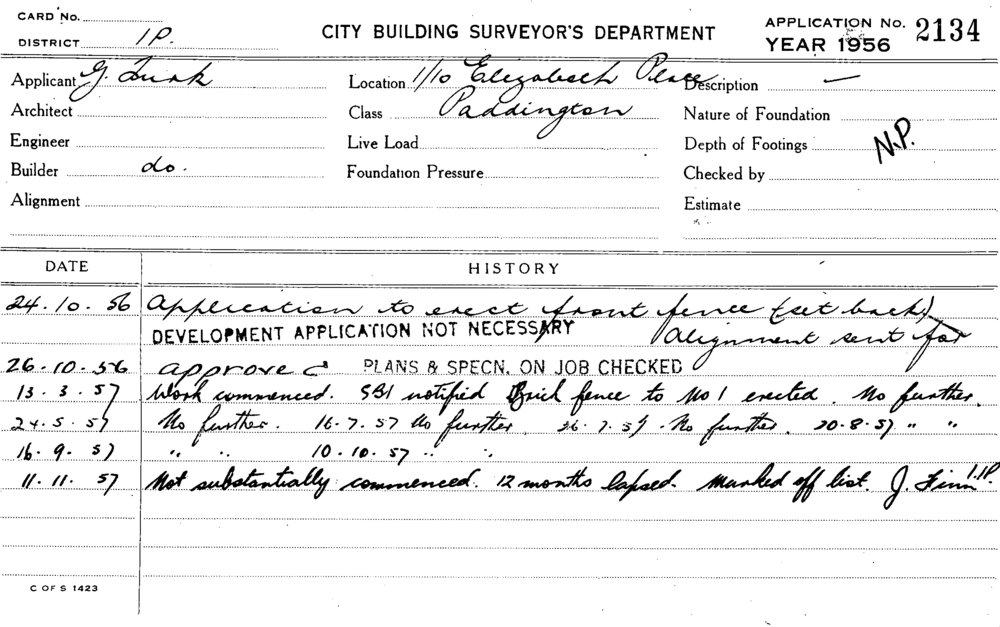 CARD No.
DISTRICT 1P.
CITY BUILDING SURVEYOR'S DEPARTMENT
APPLICATION No. 2134
YEAR 1956
Applicant G. Turk Location 1/10 Elizabeth Place Description —
Architect Class Paddington Nature of Foundation
Engineer Live Load Depth of Footings N.P.
Builder do. Foundation Pressure Checked by
Alignment Estimate
DATE HISTORY
24.10.56 Application to erect front fence (set back)
DEVELOPMENT APPLICATION NOT NECESSARY Alignment sent for
26.10.56 approved PLANS & SPECN. ON JOB CHECKED
13.3.57 Work commenced. SBI notified Brick fence to No 1 erected. No further.
24.5.57 No further. 16.7.57 No further. 26.7.57. No further. 20.8.57 " "
16.9.57 " " 10.10.57 " "
11.11.57 Not substantially commenced. 12 months lapsed. Marked off list. J. Finn 1.P.
C OF S 1423